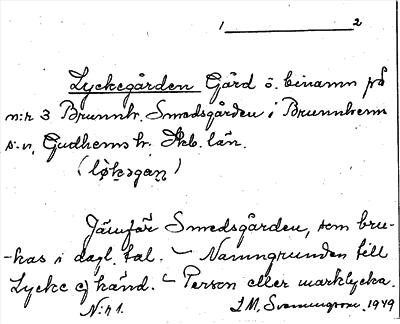 1 2
Lyckegården Gård o. binamn på
n:r 3 Brunnh. Smedsgården i Brunnhem
s:n, Gudhems hr. Skb. län.
(løkəgaɳ)
Jämför Smedsgården, som bru-
-kas i dagl. tal. - Namngrunden till
Lycke ej känd. - Person eller marklycka.
N:r 1. I.M. 1949